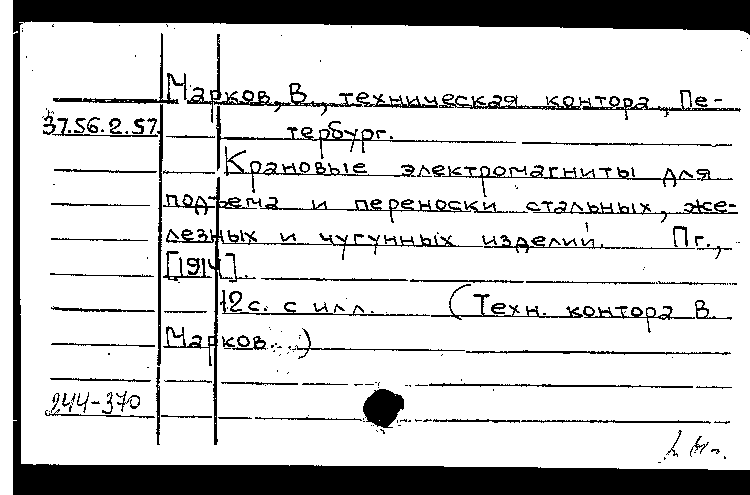 Марков, В., техническая контора, Пе-
37.56.2.57. тербург.
Крановые электромагниты для
подъема и переноски стальных, же-
лезных и чугунных изделий. Пг.,
[1914].
12с. с илл. (Техн. контора В.
Марков...)
244-370